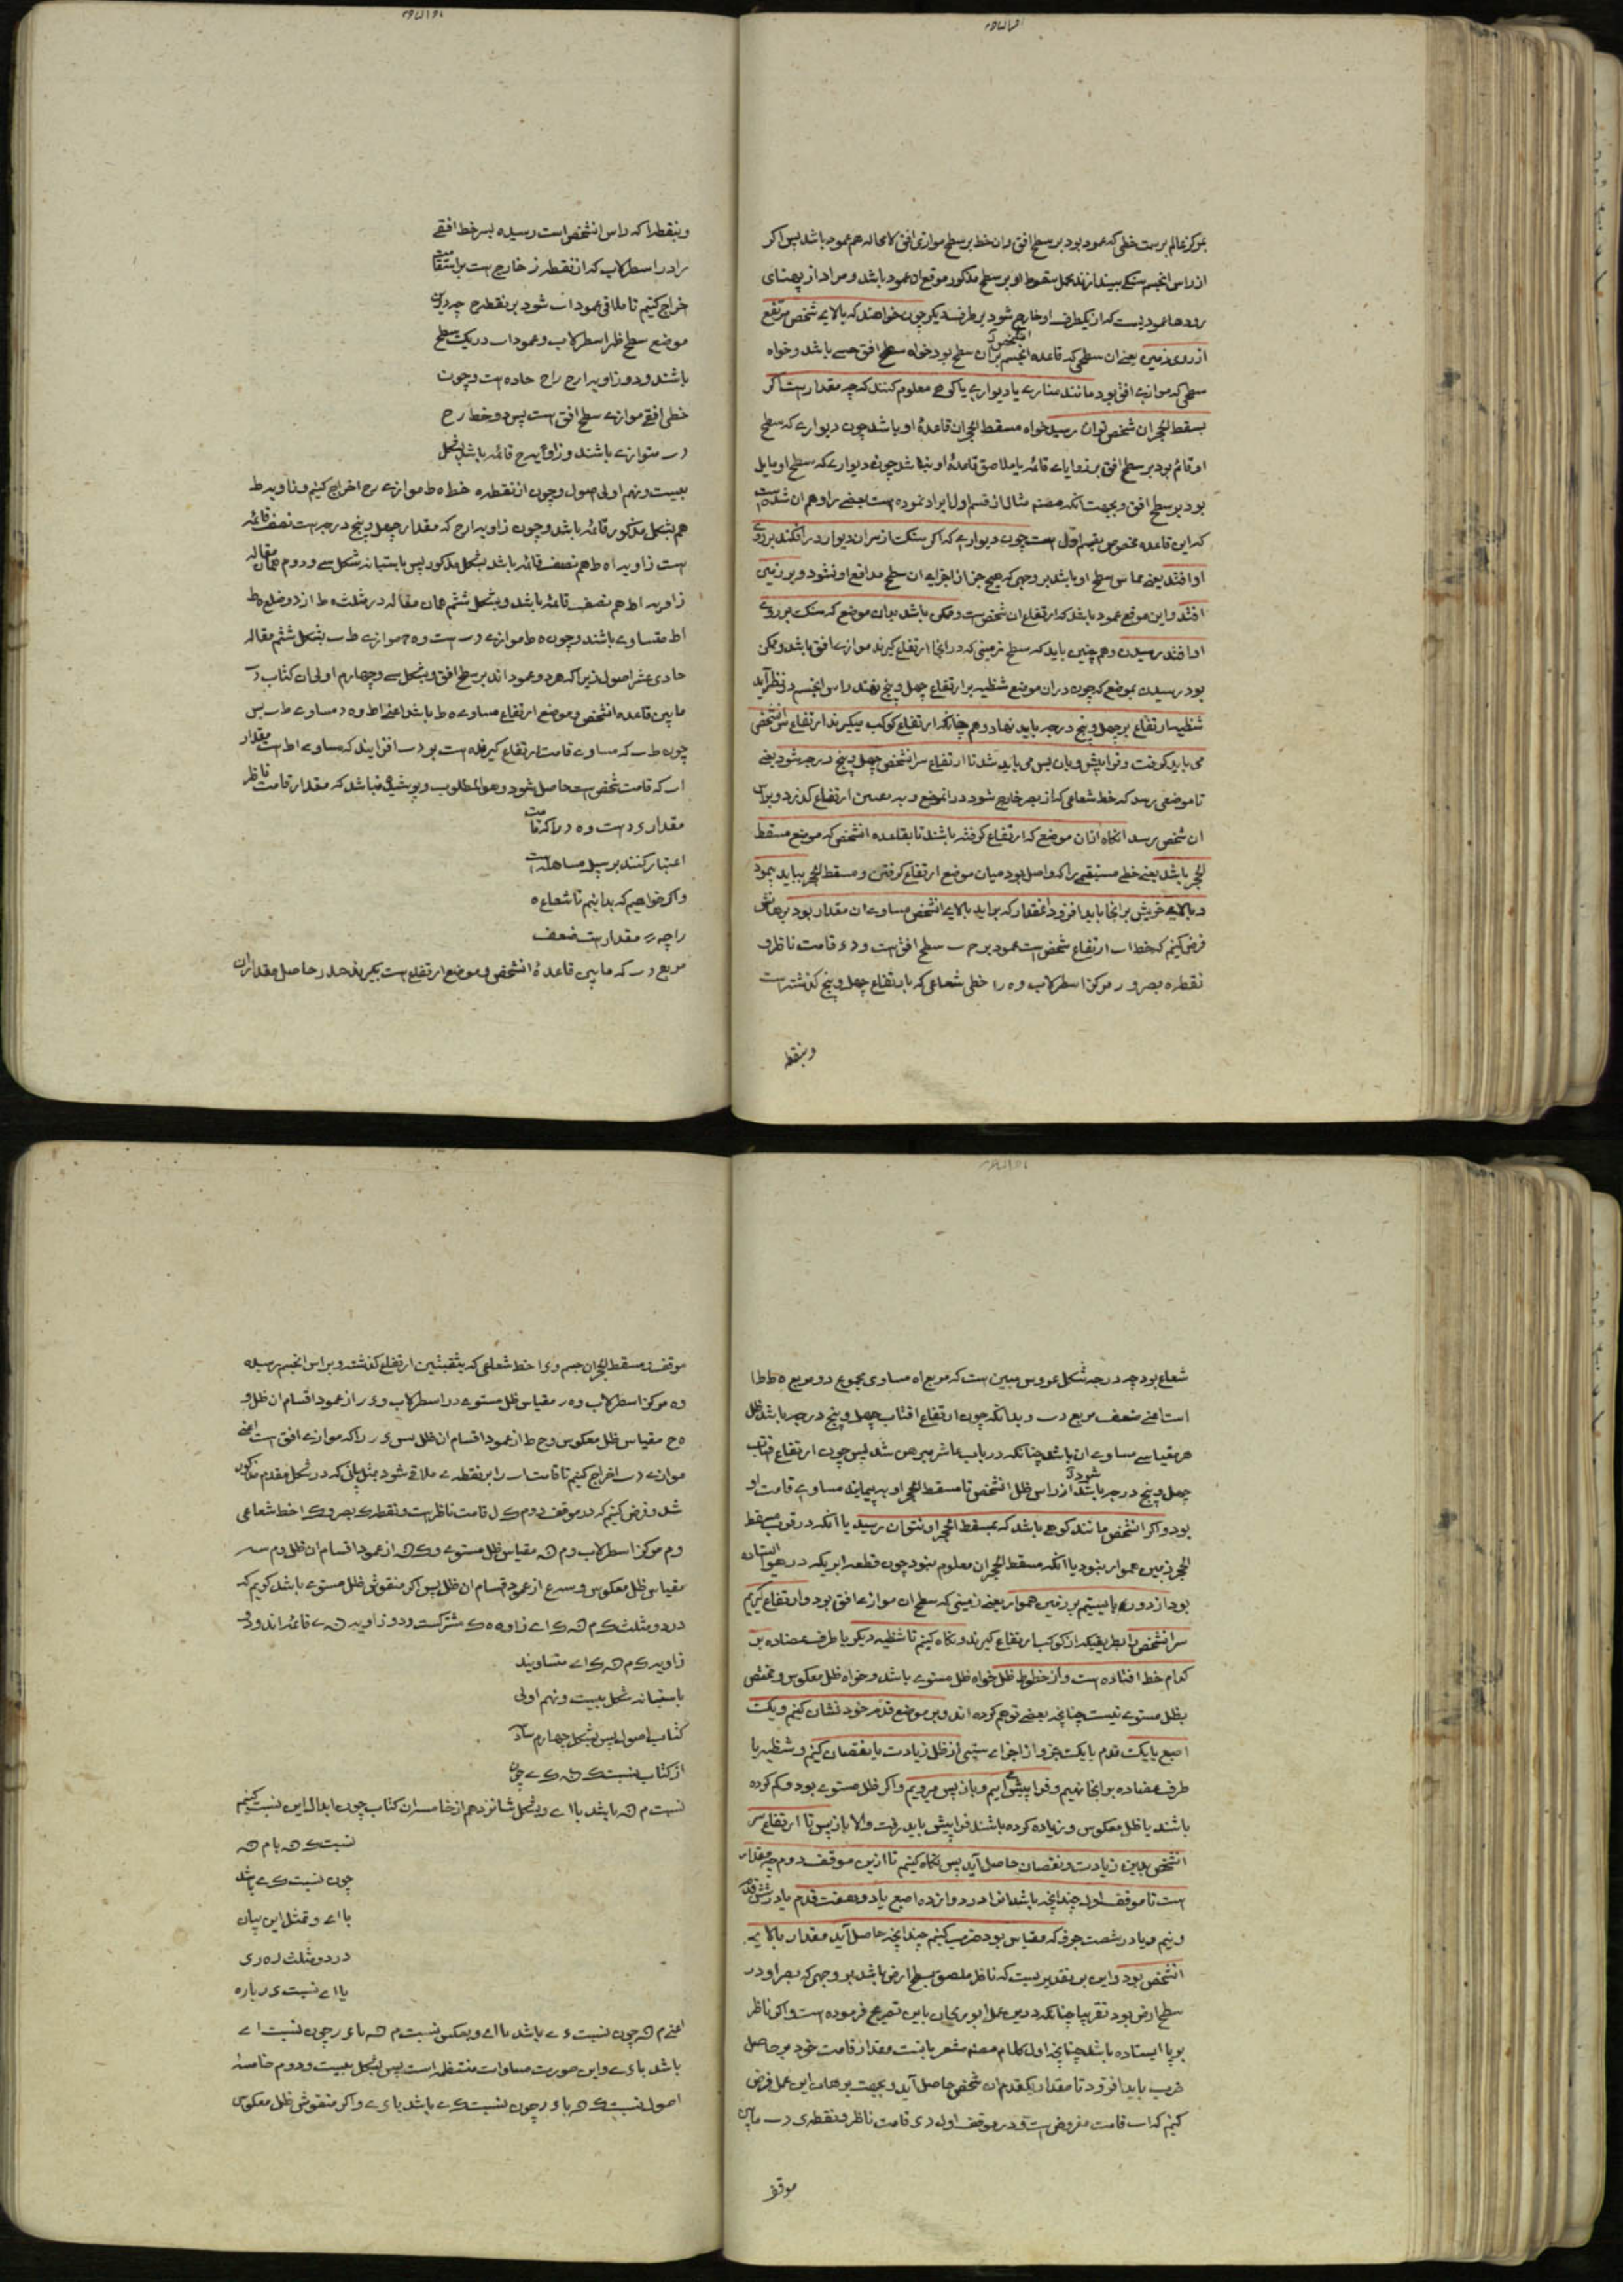 بمرکز عالم بر سمت خطی که عمود بود بر سطح افق و ان خط بر سطح موازی افق لامحاله هم عمود باشد پس اکر
از راس انجسم سنکی بیندازند محل سقوط او بر سطح مذکور موقع ان عمود باشد و مراد از پهنای
رودها عمودیست که از یکطرف او خارج شود بر طرف دیکر چون خواهند که بالای شخص مرتفع
از روی زمین یعنی ان سطحی که قاعده انجسم بران سطح بود خواه سطح افق حسی باشد و خواه
سطحی که موازی افق بود مانند مناری یا دیواری یا کوهی معلوم کنند که چه مقدار است اکر
بمسقط الحجر ان شخص توان رسید خواه مسقط الحجر ان قاعدهٔ او باشد چون دیواری که سطح
او قائم بود بر سطح افق بر زوایای قائمه یا ملاصق قاعدهٔ او نباشد چون دیواری که سطح او مایل
بود بر سطح افق و بجهت انکه مصنف مثال از قسم اول ایراد نموده است بعضی را وهم ان شده است
که این قاعده مخصوص بقسم اول است چون دیواری که اکر سنک از سر ان دیوار در افکند بر روی
او افتد یعنی مماس سطح او باشد بر وجهی که هیچ جزء از اجزای ان سطح مدافع او نشود و بر زمین
افتد و این موقع عمود باشد که ارتفاع ان شخص است و ممکن باشد بدان موضع که سنک بر روی
او افتد رسیدن و هم چنین باید که سطح زمینی که در انجا ارتفاع کیرند موازی افق باشد و ممکن
بود رسیدن بموضع که چون در ان موضع شظیه بر ارتفاع چهل و پنج نهند راس انجسم در نظر آید
شظیه ارتفاع بر چهل و پنج درجه باید نهاد و هم چنانکه ارتفاع کوکب میکیرند ارتفاع سر انشخص
می باید کرفت و فرا پیش و باز پس می باید شد تا ارتفاع سر انشخص چهل و پنج درجه شود یعنی
تا موضعی رسد که خط شعاعی که از بصر خارج شود در انموضع و به همین ارتفاع کذرد و براس
ان شخص رسد انکاه از ان موضع که ارتفاع کرفته باشند تا بقاعده انشخص که موضع مسقط
الحجر باشد یعنی خطی مستقیمی را که واصل بود میان موضع ارتفاع کرفتن و مسقط الحجر بباید پیمود
و بالای خویش بر انجا باید افزود انمقدار که براید بالای انشخص مساوی ان مقدار بود برهانش
فرض کنیم که خط اب ارتفاع شخص است عمود بر ح ب سطح افق است و د ه قامت ناظر و
نقطه ه بصر و ر مرکز اسطرلاب و ه ر ا خطی شعاعی که بارتفاع چهل و پنج کذشته است
وبنقطه
وبنقطه ا که راس انشخص است رسیده پس خط افقی
را در اسطرلاب که از نقطه ز خارج است بر استقامت
اخراج کنیم تا ملاقی عمود اب شود بر نقطه ح چه درین
موضع سطح ظهر اسطرلاب و عمود اب در یک سطح
باشند و دو زاویه ا ر ح ر ا ح حاده است و چون
خطی افقی موازی سطح افق است پس دو خط ر ح
د ب متوازی باشند و زاویه ح قائمه باشد بشکل
بیست و نهم اولی اصول و چون از نقطه ه خط ه ط موازی ر ح اخراج کنیم و زاویه ط
هم بشکل مذکور قائمه باشد و چون زاویه ا ر ح که مقدار چهل و پنج درجه است نصف قائمه
است زاویه ا ه ط هم نصف قائمه باشد بشکل مذکور پس باستبانه شکل سی و دوم همان مقاله
زاویه ه ا ط هم نصف قائمه باشد و بشکل ششم همان مقاله در مثلث ه ط ا دو ضلع ه ط
ا ط متساوی باشند و چون ه ط موازی د ب است و ه د موازی ط ب بشکل ششم مقاله
حادی عشر اصول زیرا که هر دو عمود اند بر سطح افق و بشکل سی و چهارم اولی ان کتاب د ب
ما بین قاعده انشخص و موضع ارتفاع مساوی ه ط باشد اعنی ا ط و ه د مساوی ط ب پس
چون ط ب که مساوی قامت ارتفاع کیرنده است بر د ب افزایند که مساوی ا ط است مقدار
اب که قامت شخص است حاصل شود و هو المطلوب و پوشیده نباشد که مقدار قامت ناظر
مقدار د است و ه د را که قامت
اعتبار کنند بر سبیل مساهله است
و اکر خواهیم که بدانیم تا شعاع ه
را چه مقدار است ضعف
مربع د ب که ما بین قاعدهٔ انشخص و موضع ارتفاع است بکیریم جذر حاصل مقدار ان
شعاع بود چه در جه شکل عروس مبین است که مربع ا ه مساوی مجموع دو مربع ه ط ط ا
است اعنی ضعف مربع د ب و بدانکه چون ارتفاع افتاب چهل و پنج درجه باشد ظل
هر مقیاسی مساوی ان باشد چنانکه در باب عاشر مبرهن شد پس چون ارتفاع افتاب
چهل و پنج درجه باشد از راس ظل انشخص تا مسقط الحجر او به پیمایند مساوی قامت او
بود و اکر انشخص مانند کوهی باشد که بمسقط الحجر او نتوان رسید یا انکه در قرب مسقط
الحجر زمین هموار نبود یا انکه مسقط الحجر ان معلوم نبود چون قطعه ابر یکه در هوا ایستاده
بود از دور بایستیم بر زمین هموار یعنی زمینی که سطح ان موازی افق بود و ارتفاع کیریم
سر انشخص را بطریقیکه از کوکب ارتفاع کیرند و نکاه کنیم تا شظیه دیکر یا طرف عضاده بر
کدام خط افتاده است و از خطوط ظل خواه ظل مستوی باشد و خواه ظل معکوس و مختص
بظل مستوی نیست چنانچه بعضی توهم کرده اند و بر موضع قدم خود نشان کنیم و یک
اصبع یا یک قدم یا یک جزو از اجزای ستینی از ظل زیادت یا نقصان کنیم و شظیه یا
طرف عضاده بر انجا نهیم و فرا پیش آییم و باز پس میرویم و اکر ظل مستوی بود و کم کرده
باشند یا ظل معکوس و زیاده کرده باشند فرا پیش باید رفت و الا باز پس تا ارتفاع سر
انشخص بدین زیادت و نقصان حاصل آید پس نکاه کنیم تا ازین موقف دوم چه مقدار
است تا موقف اول چندانچه باشد انرا در دوازده اصبع یا در هفت قدم یا در شش قدم
و نیم و یا در شصت جزو که مقیاس بود ضرب کنیم چندانچه حاصل آید مقدار بالای
انشخص بود و این بر تقدیریست که ناظر ملصق بسطح ارض باشد بر وجهی که بصر او در
سطح ارض بود تقریبا چنانکه در این عمل ابو ریحان باین تصریح فرموده است و اکر ناظر
بر پا ایستاده باشد چنانچه اول کلام مصنف مشعر بانست مقدار قامت خود بر حاصل
ضرب باید افزود تا مقدار قد ان شخص حاصل آید و بجهت برهان این عمل فرض
کنیم که اب قامت مفروض است و در موقف اول د ی قامت ناظر و نقطه ی د ب مابین
موقف
موقف و مسقط الحجر ان جسم و ی ا خط شعاعی که بثقبتین ارتفاع کذشته و براس انجسم رسیده
و ه مرکز اسطرلاب و ه ر مقیاس ظل مستوی در اسطرلاب و ی ر از عمود اقسام ان ظل و
ه ح مقیاس ظل معکوس و ح ط از عمود اقسام ان ظل پس ی ر را که موازی افق است اعنی
موازی د ب اخراج کنیم تا قامت اب را بر نقطه ے ملاقی شود بمثل بیانی که در شکل مقدم مذکور
شد و فرض کنیم که در موقف دوم ک ل قامت ناظر است و نقطه ک بصر و ک ا خط شعاعی
و م مرکز اسطرلاب و م ن مقیاس ظل مستوی و ک ن از عمود اقسام ان ظل و م س
مقیاس ظل معکوس و س ع از عمود اقسام ان ظل پس اکر منقوش ظل مستوی باشد کوییم که
در دو مثلث ک م ن ک ا ے زاویه ک مشترکست و دو زاویه ن ے قائمه اند و دو
زاویه ک م ن ک ا ے متساویند
باستبانه شکل بیست و نهم اولی
کتاب اصول پس بشکل چهارم سادسه
از کتاب نسبت ک ن ک ے چون
نسبت م ن باشد با ا ے و بشکل شانزدهم از خامسه ان کتاب چون ابدال این نسبت کنیم
نسبت ک ن با م ن
چون نسبت ک ے باشد
با ا ے و بمثل این بیان
در دو مثلث ر ه ر ی
با ا ے نسبت ی ر با ر ه
اعنی م ن چون نسبت ی ے باشد با ا ے و بعکس نسبت م ن با ی ر چون نسبت ا ے
باشد با ی ے و این صورت مساوات منتظمه است پس بشکل بیست و دوم خامسه
اصول نسبت ک ن با ی ر چون نسبت ک ے باشد با ی ے و اکر منقوش ظل معکوس